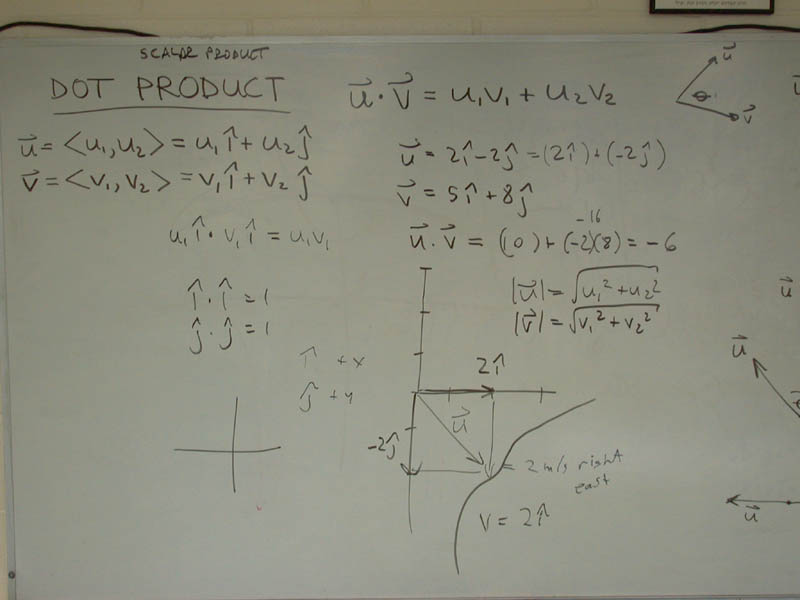 SCALAR PRODUCT
DOT PRODUCT
u⃗ · v⃗ = u₁v₁ + u₂v₂
u⃗
θ
v⃗
u⃗ = <u₁, u₂> = u₁î + u₂ĵ
v⃗ = <v₁, v₂> = v₁î + v₂ĵ
u⃗ = 2î - 2ĵ = (2î) + (-2ĵ)
v⃗ = 5î + 8ĵ
-16
u⃗ · v⃗ = (10) + (-2)(8) = -6
u₁î · v₁î = u₁v₁
î · î = 1
ĵ · ĵ = 1
|u⃗| = √(u₁² + u₂²)
|v⃗| = √(v₁² + v₂²)
î +x
ĵ +y
2î
u⃗
-2ĵ
= 2 m/s right
east
v = 2î
u⃗
u⃗
u⃗